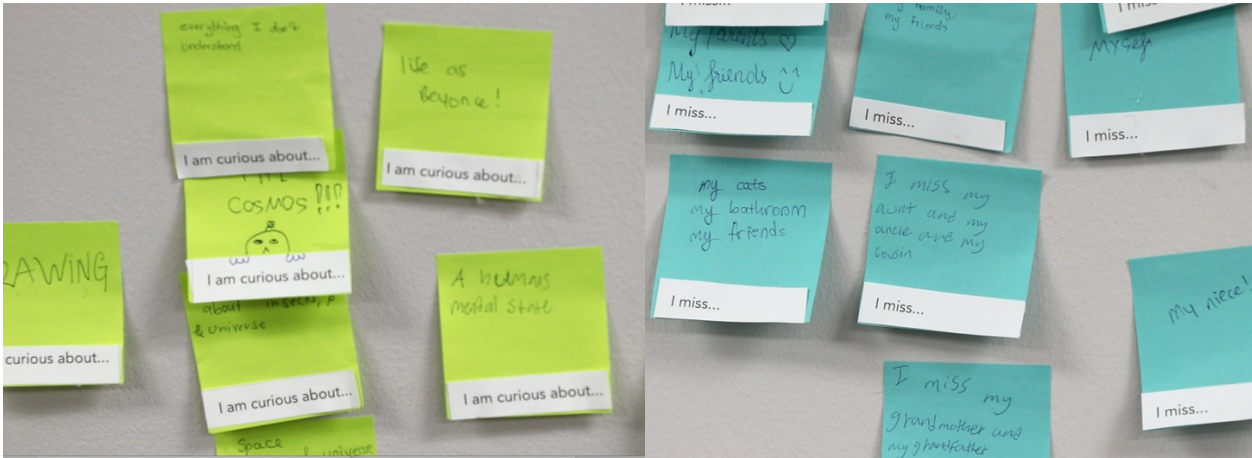 everything I don't
understand
I am curious about...
life as
Beyonce!
I am curious about...
COSMOS !!!
I am curious about...
RAWING
curious about...
about insects,
& universe
I am curious about...
A humans
mental state
I am curious about...
Space
& universe
My parents ♡
My friends
I miss...
my family,
my friends
I miss...
I miss...
Myself
I miss...
my cats
my bathroom
my friends
I miss...
I miss my
aunt and my
uncle and my
cousin
I miss...
my niece!
I miss...
I miss my
grandmother and
my grandfather